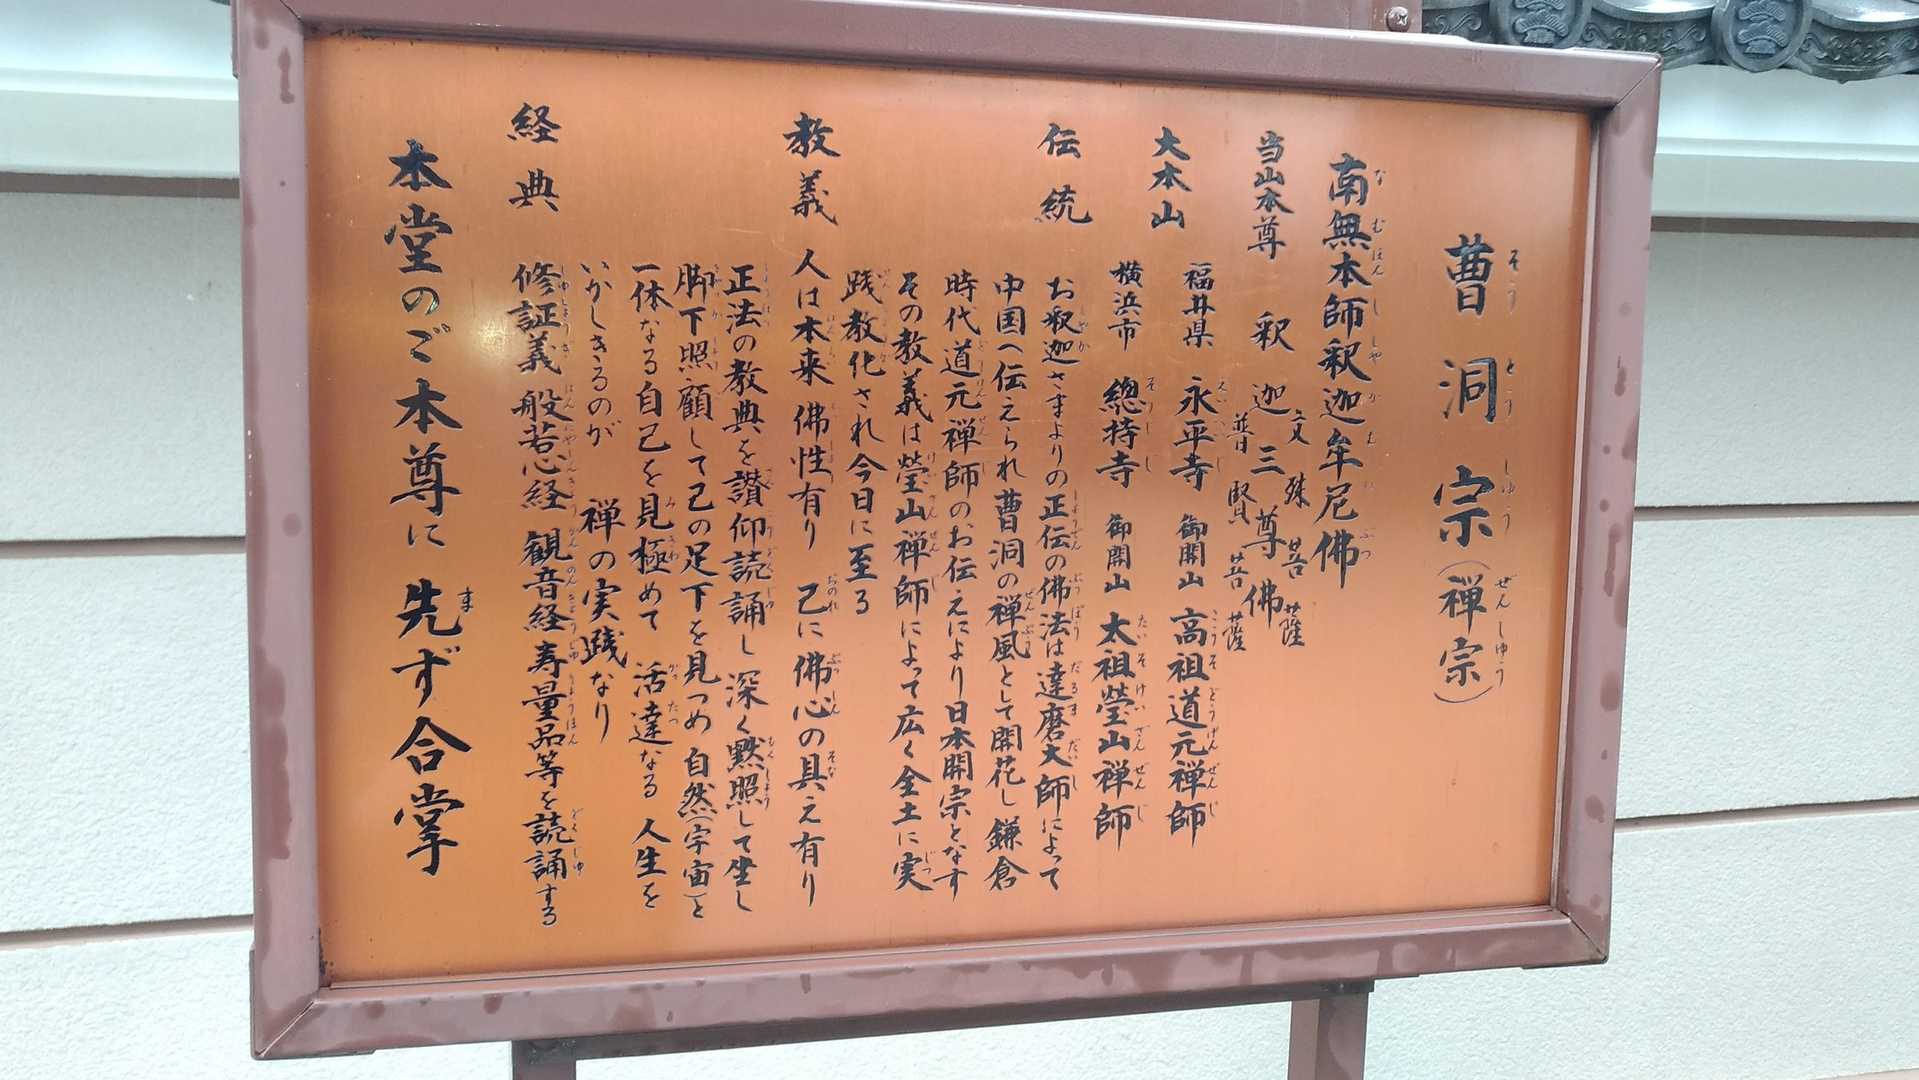 曹洞宗（禅宗）
南無本師釈迦牟尼佛
当山本尊 釈迦三尊佛
文殊菩薩
普賢菩薩
大本山 福井県 永平寺 御開山 高祖道元禅師
横浜市 總持寺 御開山 太祖瑩山禅師
伝統 お釈迦さまよりの正伝の佛法は達磨大師によって
中国へ伝えられ曹洞の禅風として開花し鎌倉
時代道元禅師のお伝えにより日本開宗となす
その教義は瑩山禅師によって広く全土に実
践教化され今日に至る
教義 人は本来佛性有り 己に佛心の具え有り
正法の教典を讃仰読誦し深く黙照して坐し
脚下照顧して己の足下を見つめ自然（宇宙）と
一体なる自己を見極めて 活達なる人生を
いかしきるのが 禅の実践なり
経典 修証義 般若心経 観音経 寿量品等を読誦する
本堂のご本尊に先ず合掌